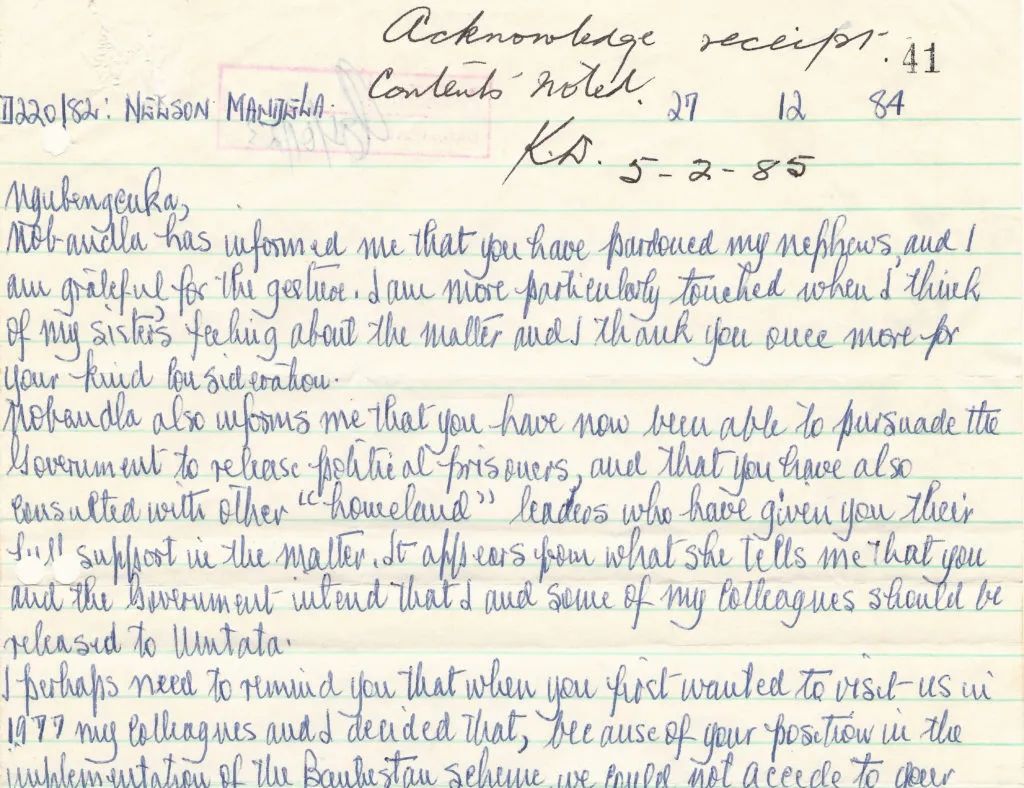 Acknowledge receipt.
41
Contents Noted.
D220/82: NELSON MANDELA.
27 12 84
K.D. 5-2-85
Ngubengcuka,
Nobandla has informed me that you have pardoned my nephews, and I
am grateful for the gesture. I am more particularly touched when I think
of my sister's feeling about the matter and I thank you once more for
your kind consideration.
Nobandla also informs me that you have now been able to pursuade the
Government to release political prisoners, and that you have also
consulted with other "homeland" leaders who have given you their
full support in the matter. It appears from what she tells me that you
and the Government intend that I and some of my colleagues should be
released to Umtata.
I perhaps need to remind you that when you first wanted to visit us in
1977 my colleagues and I decided that, because of your position in the
implementation of the Bantustan scheme, we could not accede to your